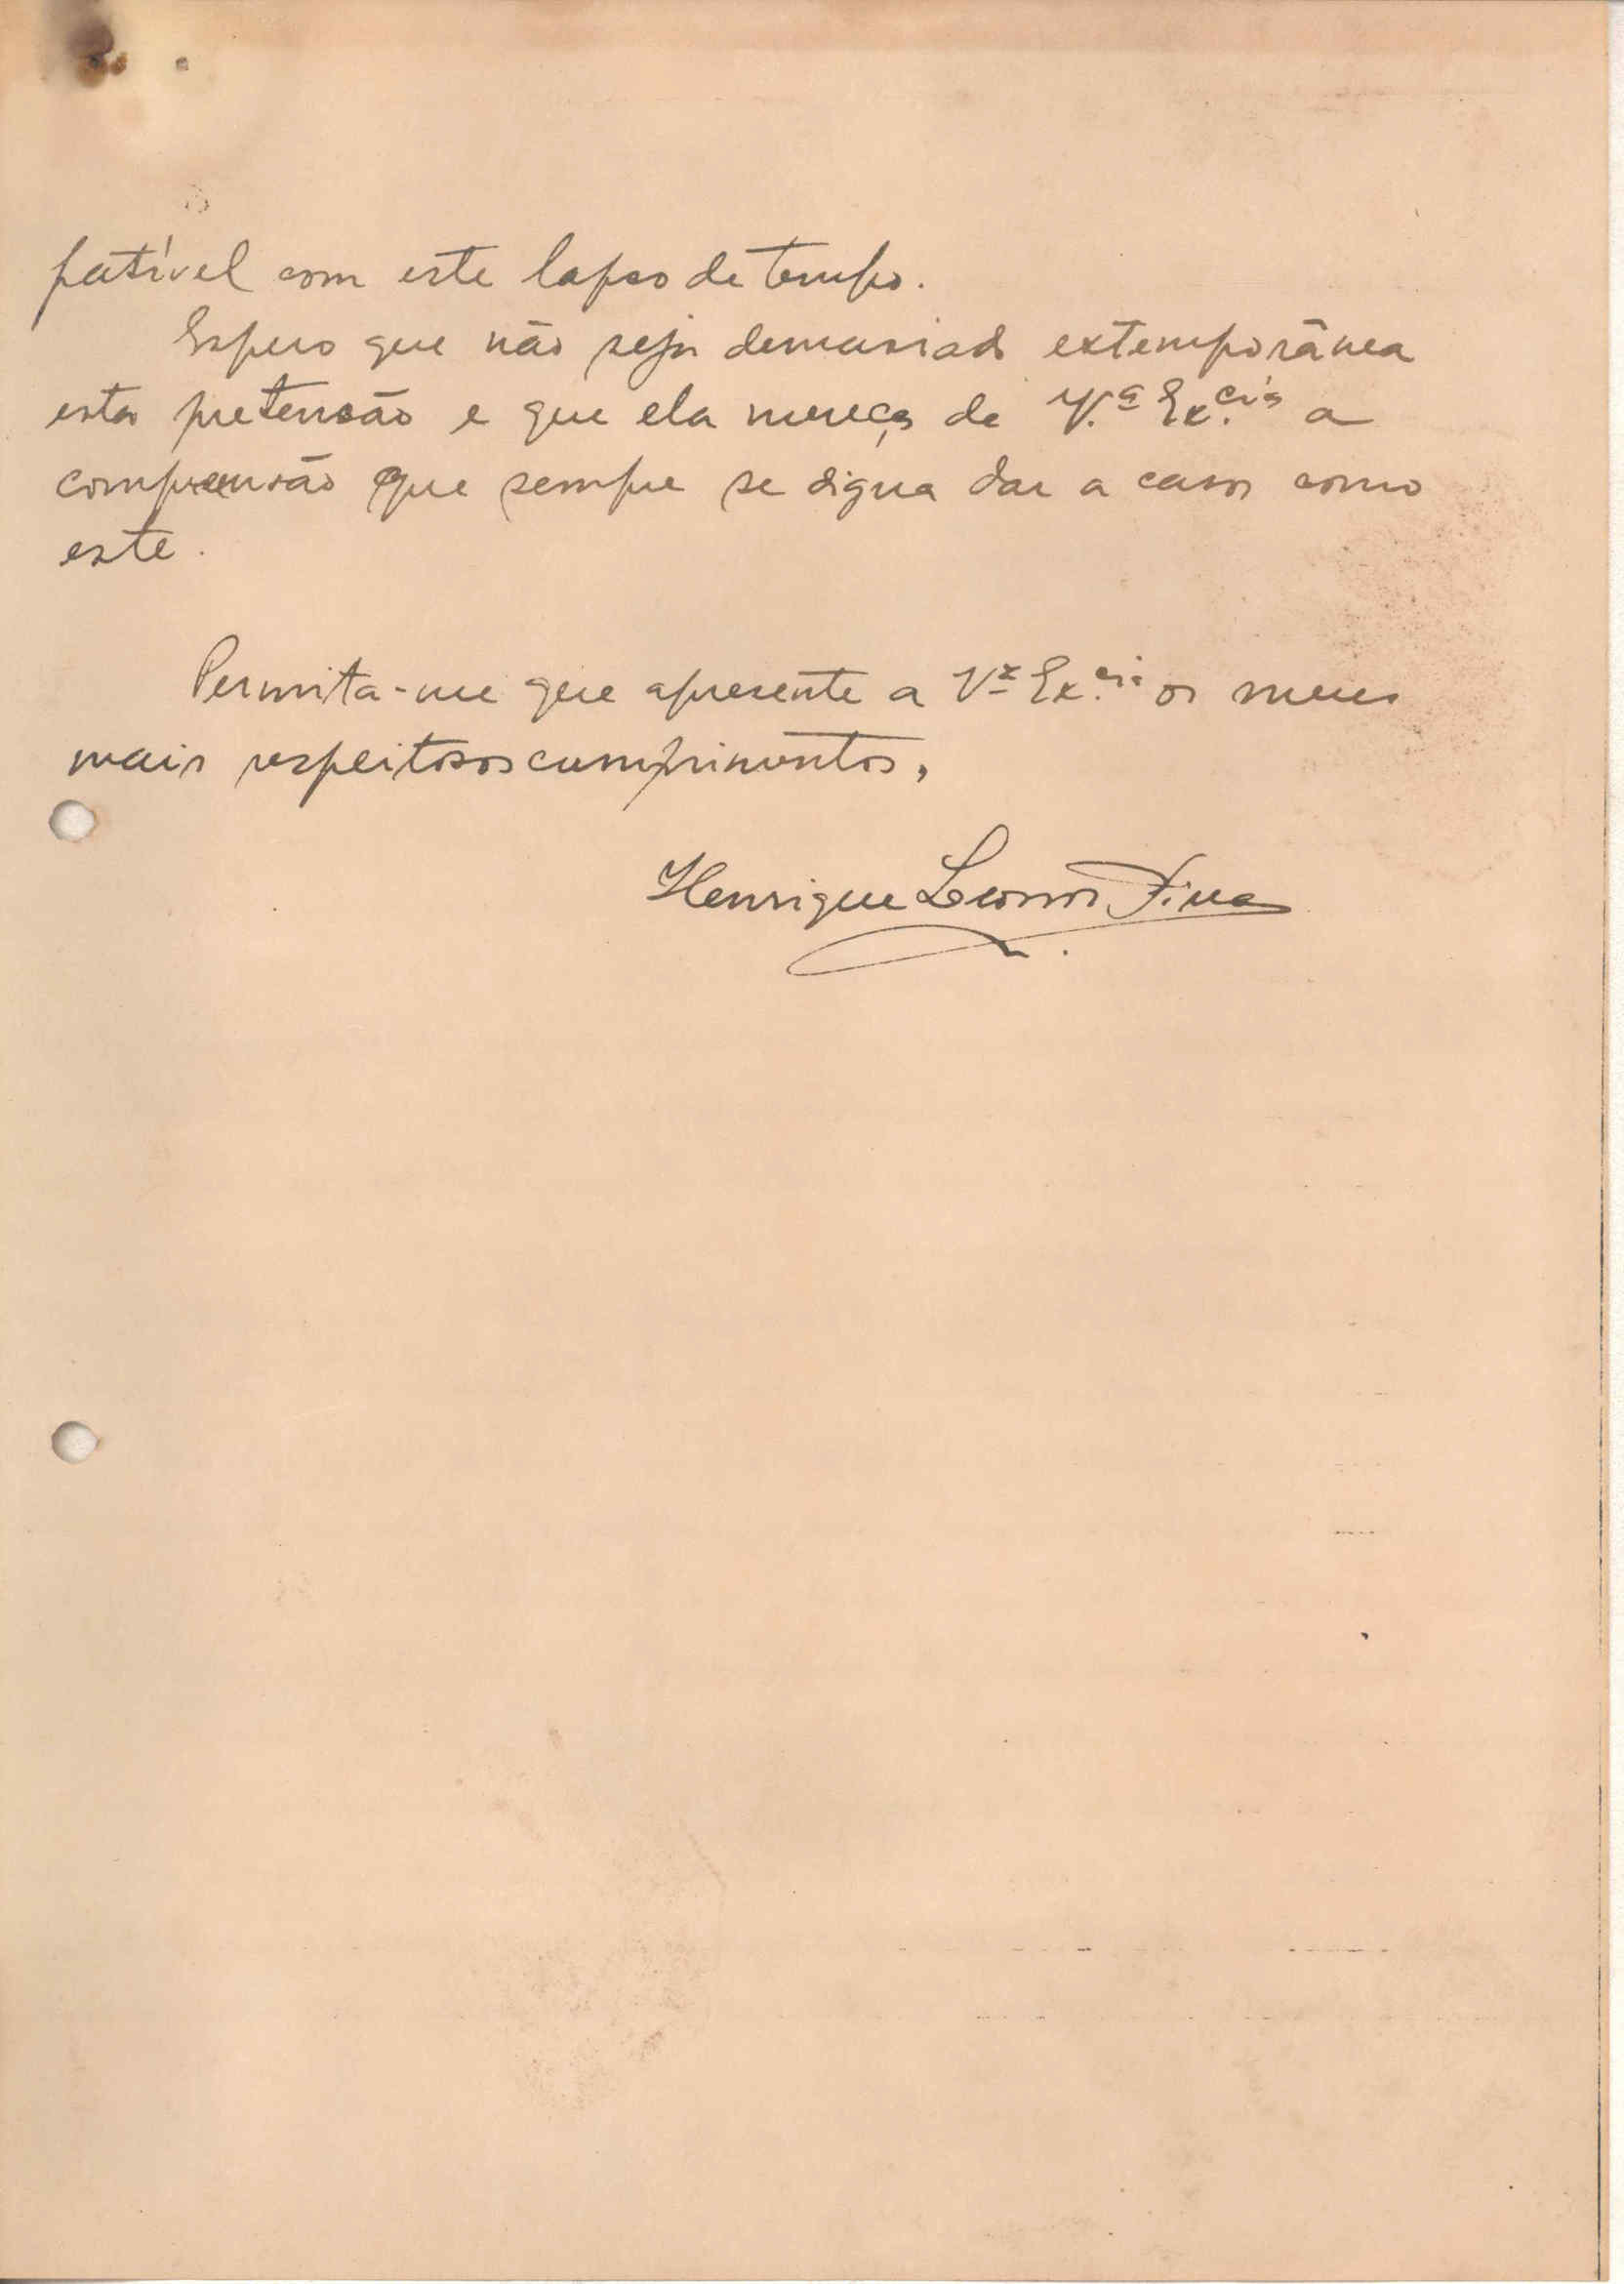 patível com este lapso de tempo.
Espero que não seja demasiado extemporânea
esta pretensão e que ela mereça de V.ª Ex.cia a
compreensão que sempre se digna dar a casos como
este.
Permita-me que apresente a Vª Ex.cia os meus
mais respeitosos cumprimentos,
Henrique Leonor Fina